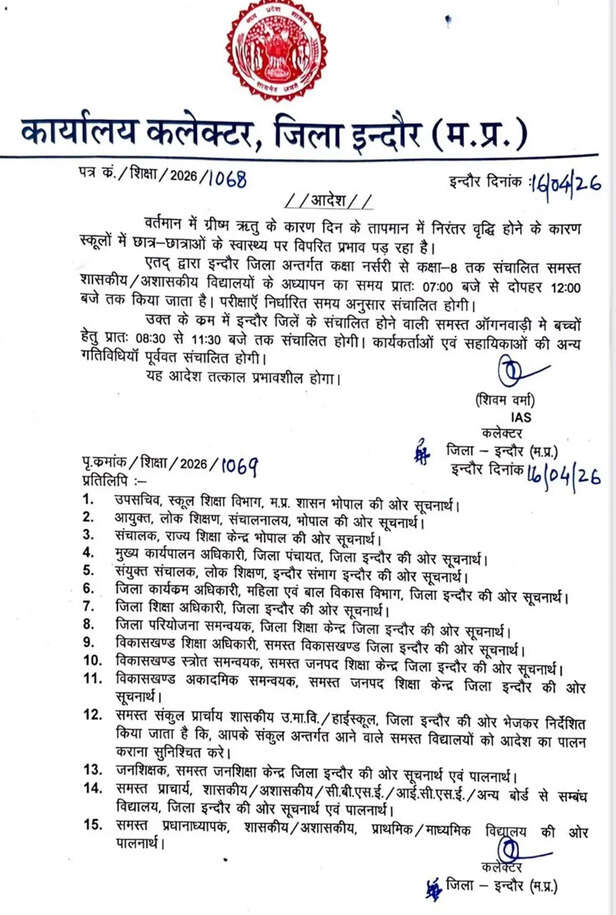 मध्य प्रदेश शासन
सत्यमेव जयते
कार्यालय कलेक्टर, जिला इन्दौर (म.प्र.)
पत्र कं./शिक्षा/2026/1068
इन्दौर दिनांक :16/04/26
//आदेश//
वर्तमान में ग्रीष्म ऋतु के कारण दिन के तापमान में निरंतर वृद्धि होने के कारण
स्कूलों में छात्र-छात्राओं के स्वास्थ्य पर विपरित प्रभाव पड़ रहा है।
एतद् द्वारा इन्दौर जिला अन्तर्गत कक्षा नर्सरी से कक्षा-8 तक संचालित समस्त
शासकीय/अशासकीय विद्यालयों के अध्यापन का समय प्रातः 07:00 बजे से दोपहर 12:00
बजे तक किया जाता है। परीक्षाऍं निर्धारित समय अनुसार संचालित होगी।
उक्त के क्रम में इन्दौर जिलें के संचालित होने वाली समस्त ऑगनवाड़ी मे बच्चों
हेतु प्रातः 08:30 से 11:30 बजे तक संचालित होगी। कार्यकर्ताओं एवं सहायिकाओं की अन्य
गतिविधियॉ पूर्ववत संचालित होगी।
यह आदेश तत्काल प्रभावशील होगा।
(शिवम वर्मा)
IAS
कलेक्टर
जिला - इन्दौर (म.प्र.)
पृ.कमांक/शिक्षा/2026/1069
इन्दौर दिनांक 16/04/26
प्रतिलिपि :-
1. उपसचिव, स्कूल शिक्षा विभाग, म.प्र. शासन भोपाल की ओर सूचनार्थ।
2. आयुक्त, लोक शिक्षण, संचालनालय, भोपाल की ओर सूचनार्थ।
3. संचालक, राज्य शिक्षा केन्द्र भोपाल की ओर सूचनार्थ।
4. मुख्य कार्यपालन अधिकारी, जिला पंचायत, जिला इन्दौर की ओर सूचनार्थ।
5. संयुक्त संचालक, लोक शिक्षण, इन्दौर संभाग इन्दौर की ओर सूचनार्थ।
6. जिला कार्यक्रम अधिकारी, महिला एवं बाल विकास विभाग, जिला इन्दौर की ओर सूचनार्थ।
7. जिला शिक्षा अधिकारी, जिला इन्दौर की ओर सूचनार्थ।
8. जिला परियोजना समन्वयक, जिला शिक्षा केन्द्र जिला इन्दौर की ओर सूचनार्थ।
9. विकासखण्ड शिक्षा अधिकारी, समस्त विकासखण्ड जिला इन्दौर की ओर सूचनार्थ।
10. विकासखण्ड स्त्रोत समन्वयक, समस्त जनपद शिक्षा केन्द्र जिला इन्दौर की ओर सूचनार्थ।
11. विकासखण्ड अकादमिक समन्वयक, समस्त जनपद शिक्षा केन्द्र जिला इन्दौर की ओर
सूचनार्थ।
12. समस्त संकुल प्राचार्य शासकीय उ.मा.वि./हाईस्कूल, जिला इन्दौर की ओर भेजकर निर्देशित
किया जाता है कि, आपके संकुल अन्तर्गत आने वाले समस्त विद्यालयों को आदेश का पालन
कराना सुनिश्चित करे।
13. जनशिक्षक, समस्त जनशिक्षा केन्द्र जिला इन्दौर की ओर सूचनार्थ एवं पालनार्थ।
14. समस्त प्राचार्य, शासकीय/अशासकीय/सी.बी.एस.ई./आई.सी.एस.ई./अन्य बोर्ड से सम्बंध
विद्यालय, जिला इन्दौर की ओर सूचनार्थ एवं पालनार्थ।
15. समस्त प्रधानाध्यापक, शासकीय/अशासकीय, प्राथमिक/माध्यमिक विद्यालय की ओर
पालनार्थ।
कलेक्टर
जिला - इन्दौर (म.प्र.)